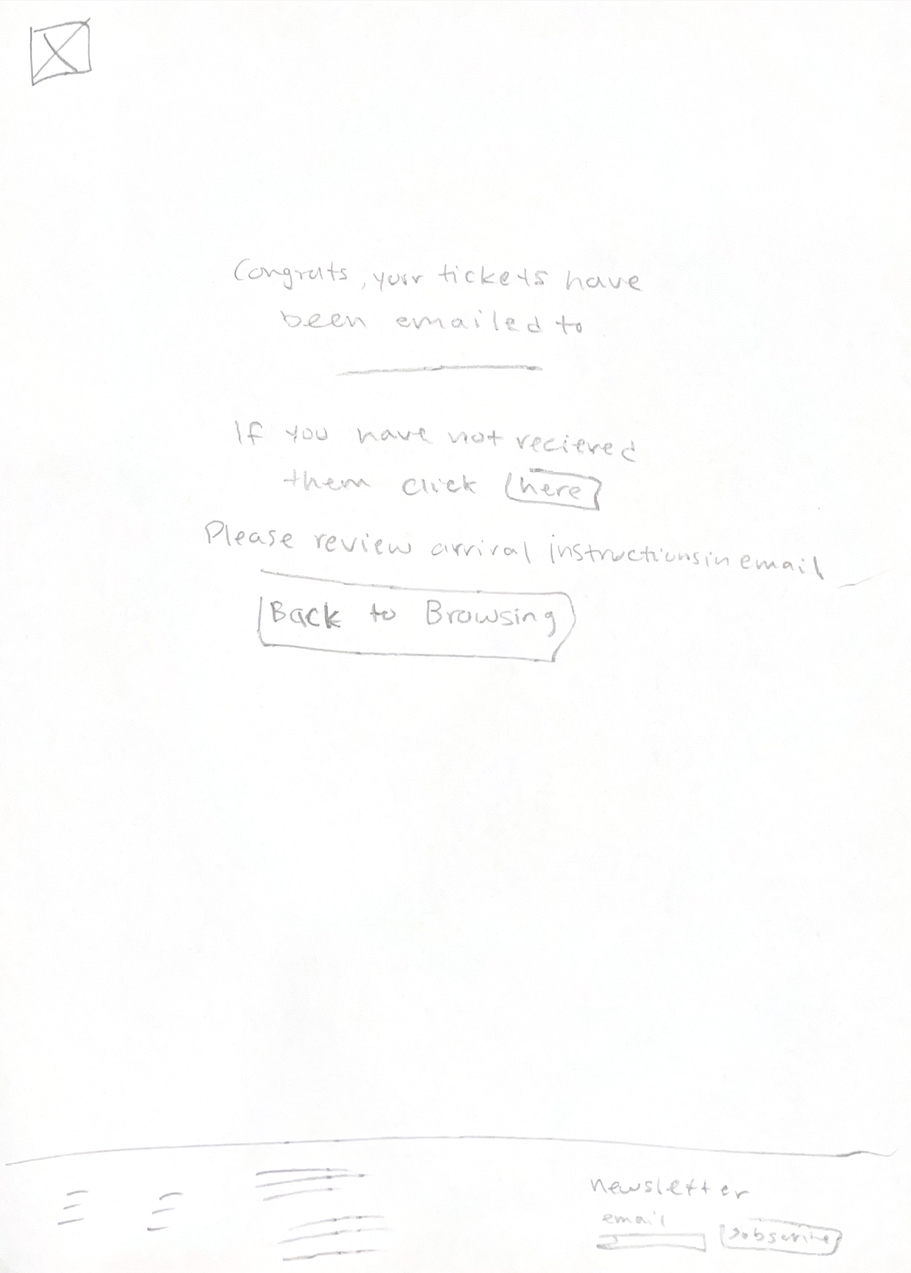 Congrats, your tickets have
been emailed to
If you have not recieved
them click here
Please review arrival instructions in email
Back to Browsing
newsletter
email
subscribe